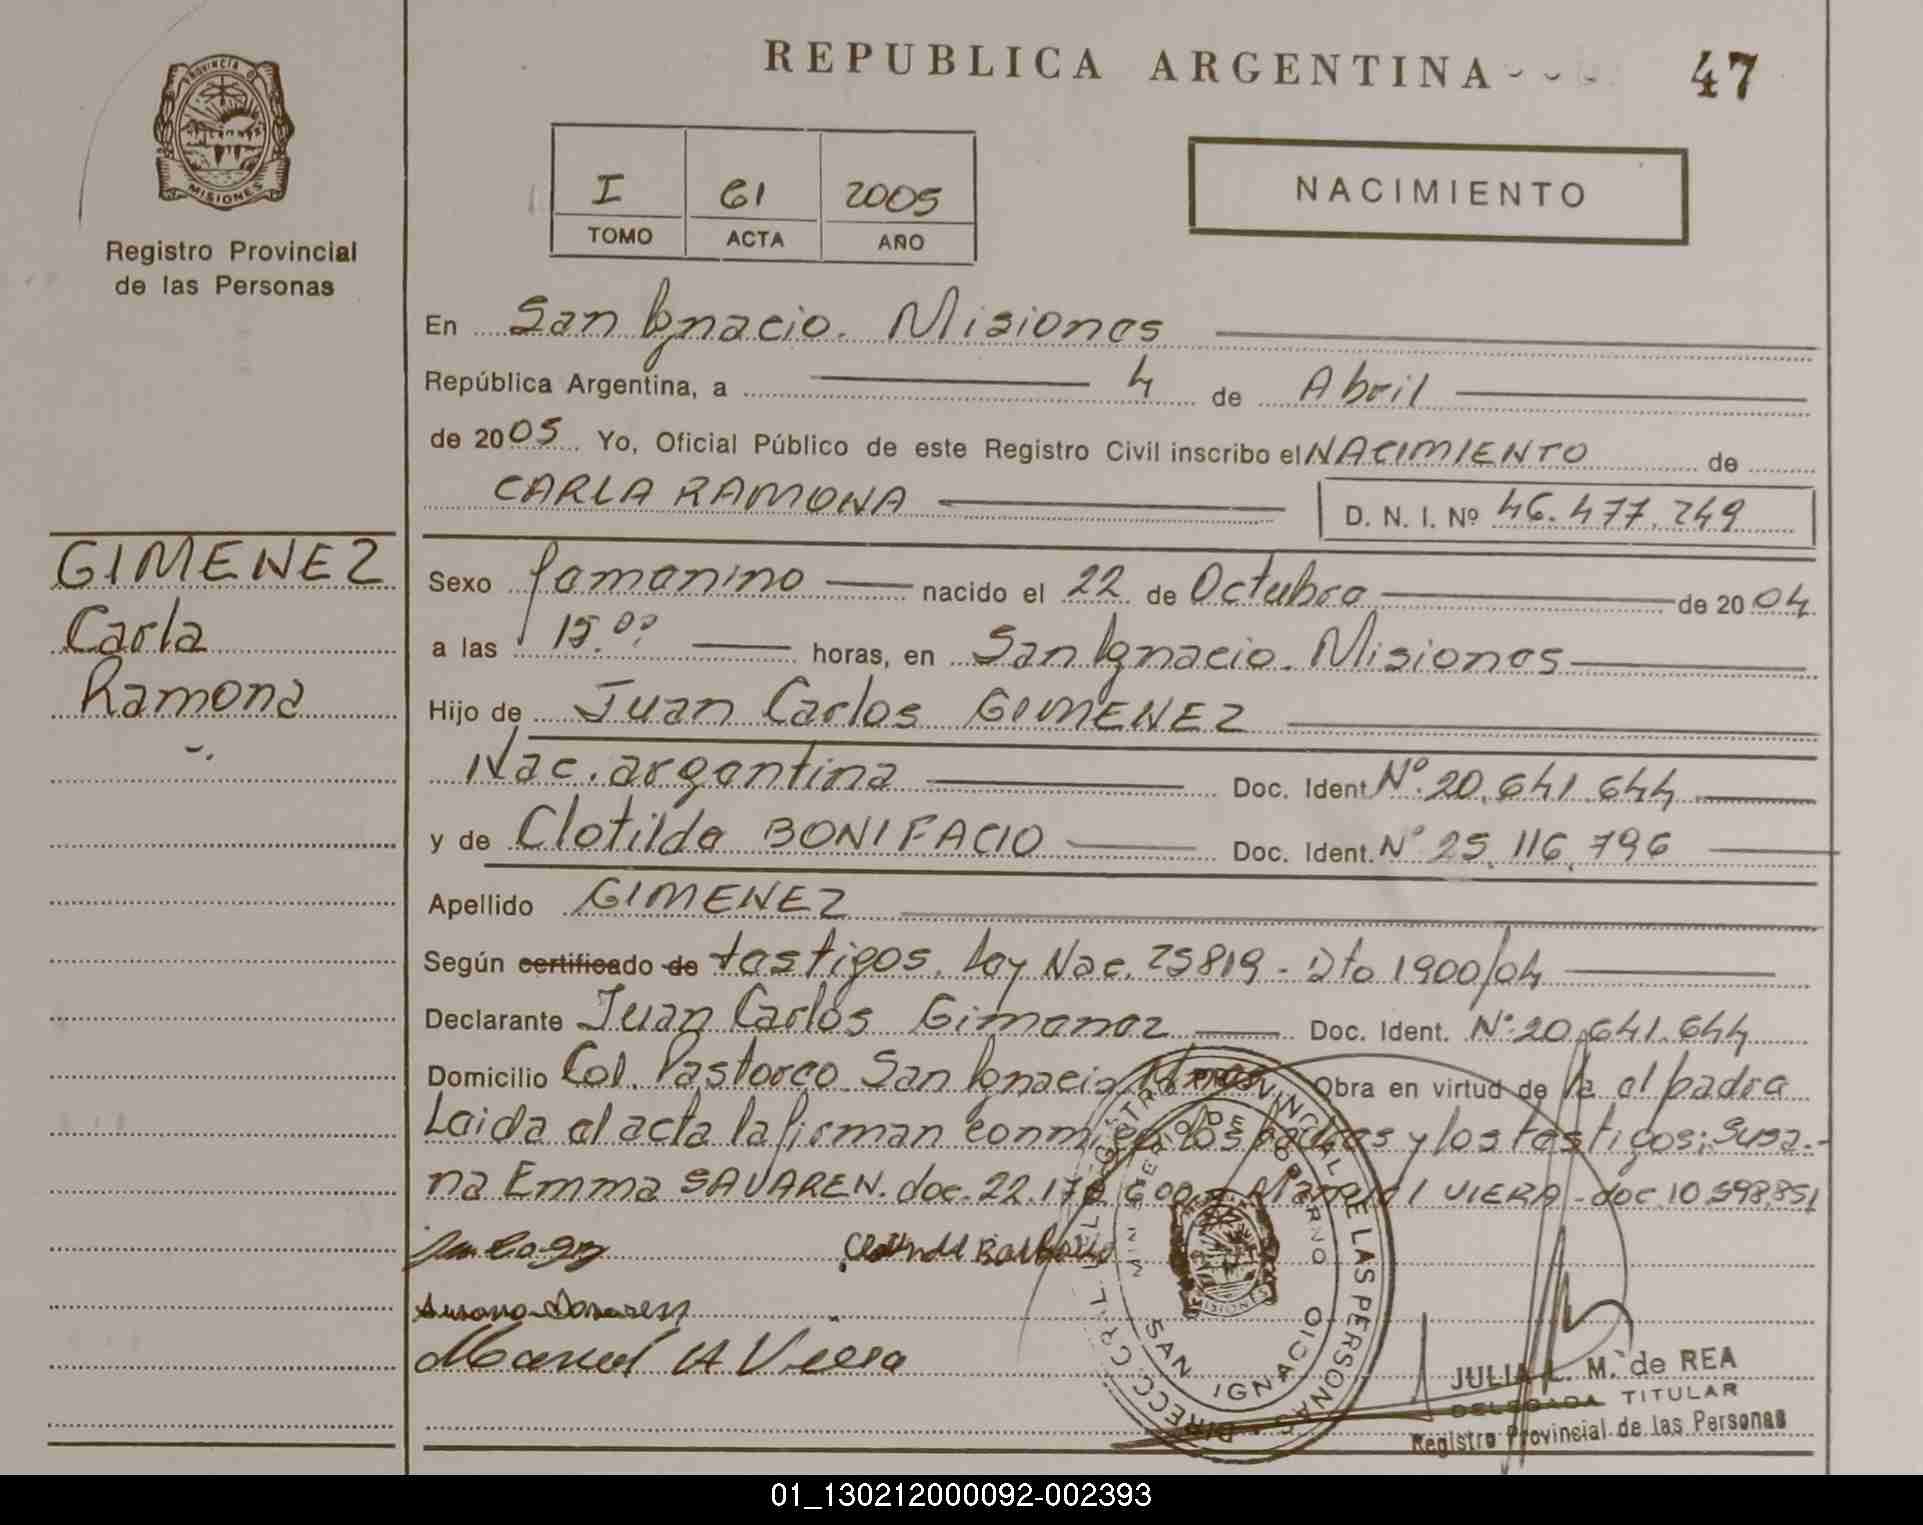 REPUBLICA ARGENTINA
47
PROVINCIA DE
MISIONES
Registro Provincial
de las Personas
I 61 2005
TOMO ACTA AÑO
NACIMIENTO
En San Ignacio. Misiones
República Argentina, a 4 de Abril
de 2005 Yo, Oficial Público de este Registro Civil inscribo el NACIMIENTO de
CARLA RAMONA D. N. I. Nº 46.477.249
GIMENEZ
Carla
Ramona
Sexo femenino nacido el 22 de Octubre de 2004
a las 15.00 horas, en San Ignacio. Misiones
Hijo de Juan Carlos GIMENEZ
Nac. argentina Doc. Ident. Nº.20.641.644
y de Clotilde BONIFACIO Doc. Ident. Nº 25.116.796
Apellido GIMENEZ
Según certificado de testigos. Ley Nac. 25819 - Dto 1900/04
Declarante Juan Carlos Gimenez Doc. Ident. Nº.20.641.644
Domicilio Col. Pastoreo San Ignacio Mnes Obra en virtud de la el padre
Leida el acta la firman conmigo los padres y los testigos: Susa-
na Emma SAVAREN. doc. 22.170.600 y Manuel VIERA - doc 10.598.851
Manuel A Viera
DIRECC. GR'L. REGISTRO PROVINCIAL DE LAS PERSONAS
MINISTERIO DE GOBIERNO
MISIONES
SAN IGNACIO
JULIA L. M. de REA
DELEGADA TITULAR
Registro Provincial de las Personas
01_130212000092-002393